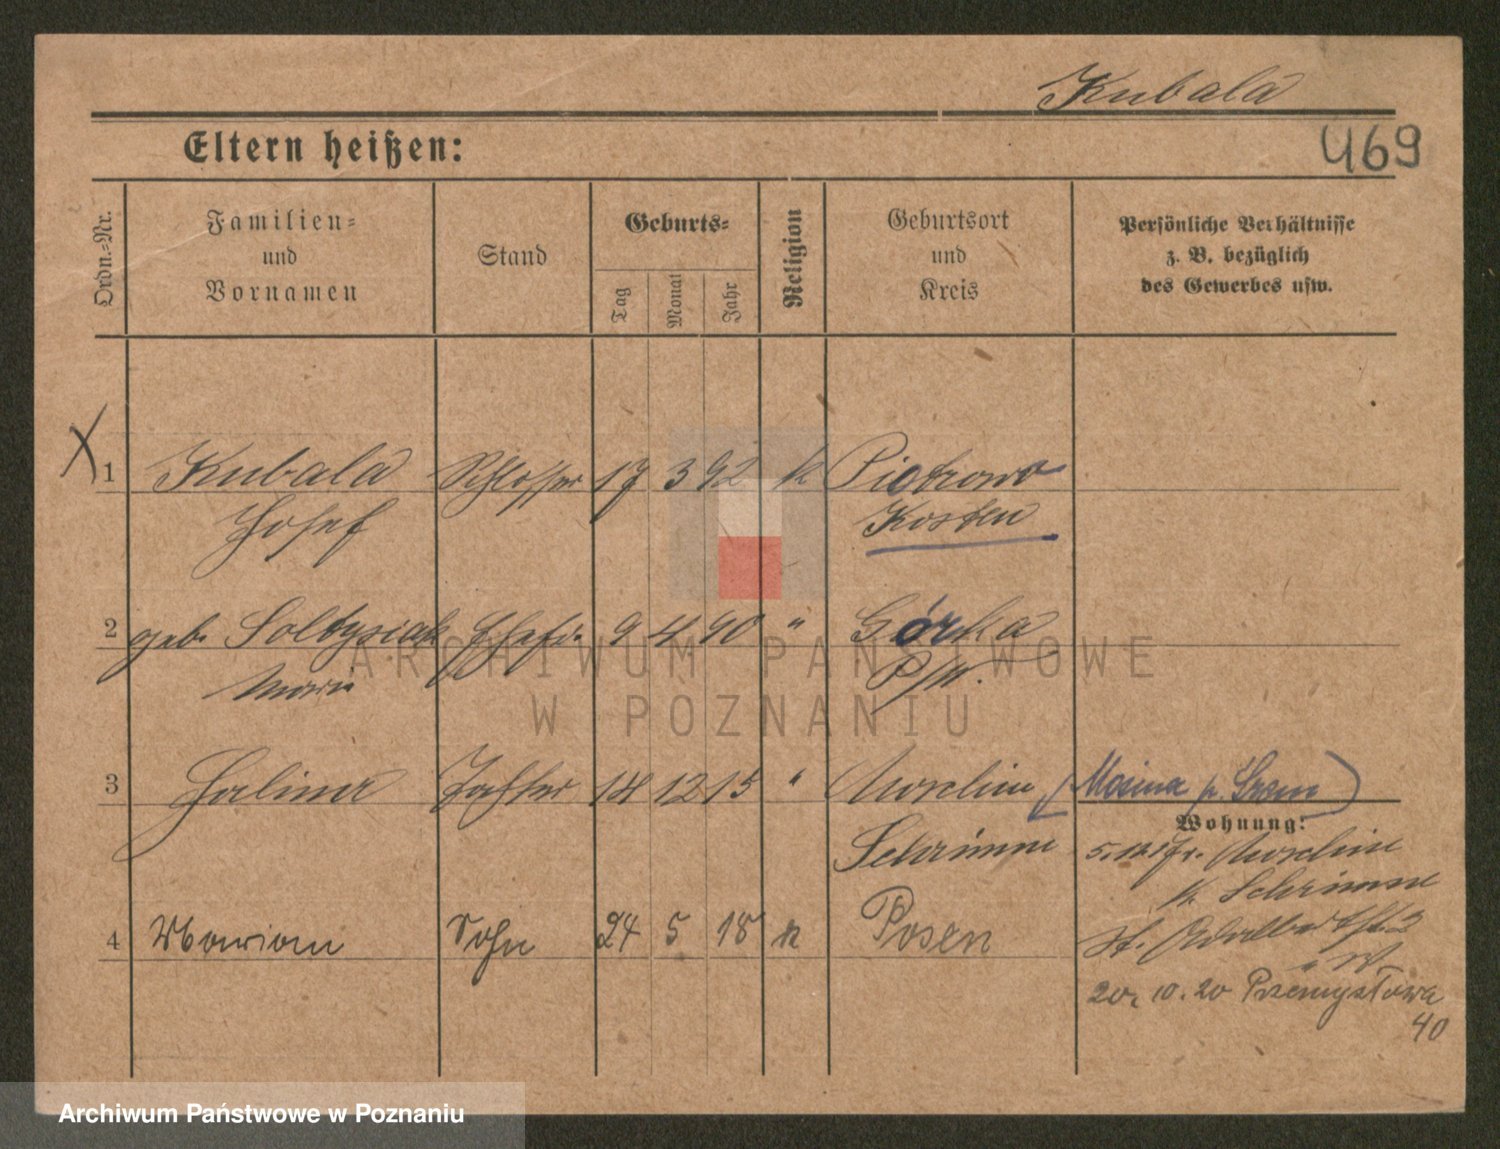 Kubala
Eltern heißen:
469
Ordn.-Nr.
Familien- und Vornamen
Stand
Geburts-
Tag
Monat
Jahr
Religion
Geburtsort und Kreis
Persönliche Verhältnisse
z. B. bezüglich
des Gewerbes usw.
X 1 Kubala Schlosser 17 3 92 k Piotrowo
Josef Kosten
2 geb. Soltysiak Ehefr. 9 4 90 " Górka
Marie P/W.
3 Halina Tochter 14 12 15 " Moschin (Mosina p. Śrem)
Wohnung:
Schrimm 5.12.17 fr. Moschin
K. Schrimm
4 Maryan Sohn 24 5 18 k Posen St. Adalbertstr. 2
20.10.20 Przemysłowa
40
ARCHIWUM PAŃSTWOWE
W POZNANIU
Archiwum Państwowe w Poznaniu